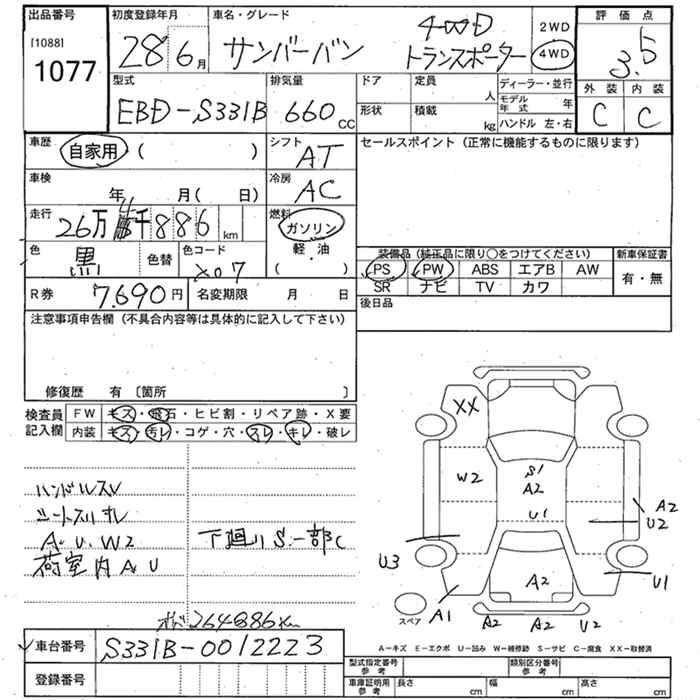 出品番号
[1088]
1077
初度登録年月
28 6月
車名・グレード
サンバーバン
4WD
トランスポーター
2WD
4WD
評価点
3.5
外装 内装
C C
型式
EBD-S331B
排気量
660 CC
ドア
定員
人
形状
積載
kg
ディーラー・並行
モデル年式 年
ハンドル 左・右
車歴
自家用 ( )
シフト
AT
車検
年 月( 日)
冷房
AC
走行
26万4千886 km
燃料
ガソリン
軽・油
( )
色
黒
色替
色コード
X07
R券 7.690円
名変期限 月 日
セールスポイント (正常に機能するものに限ります)
装備品 (純正品に限り○をつけてください)
新車保証書
PS PW ABS エアB AW
SR ナビ TV カワ
有・無
後日品
注意事項申告欄 (不具合内容等は具体的に記入して下さい)
修復歴 有 〔箇所 〕
検査員
記入欄
FW キズ・飛石・ヒビ割・リペア跡・X要
内装 キズ・汚レ・コゲ・穴・スレ・キレ・破レ
ハンドルスレ
シートスリキレ
A.U.W2
荷室内A.U
下廻りS.一部C
オドメ264886km
XX
W2
S1
A2
U1
A2
U2
U3
U1
A2
A1
A2
A2
U2
スペア
A-キズ E-エクボ U-凹み W-補修跡 S-サビ C-腐食 XX-取替済
車台番号 S331B-0012223
登録番号
型式指定番号
参考
類別区分番号
参考
車庫証明用
参考
長さ cm
幅 cm
高さ cm